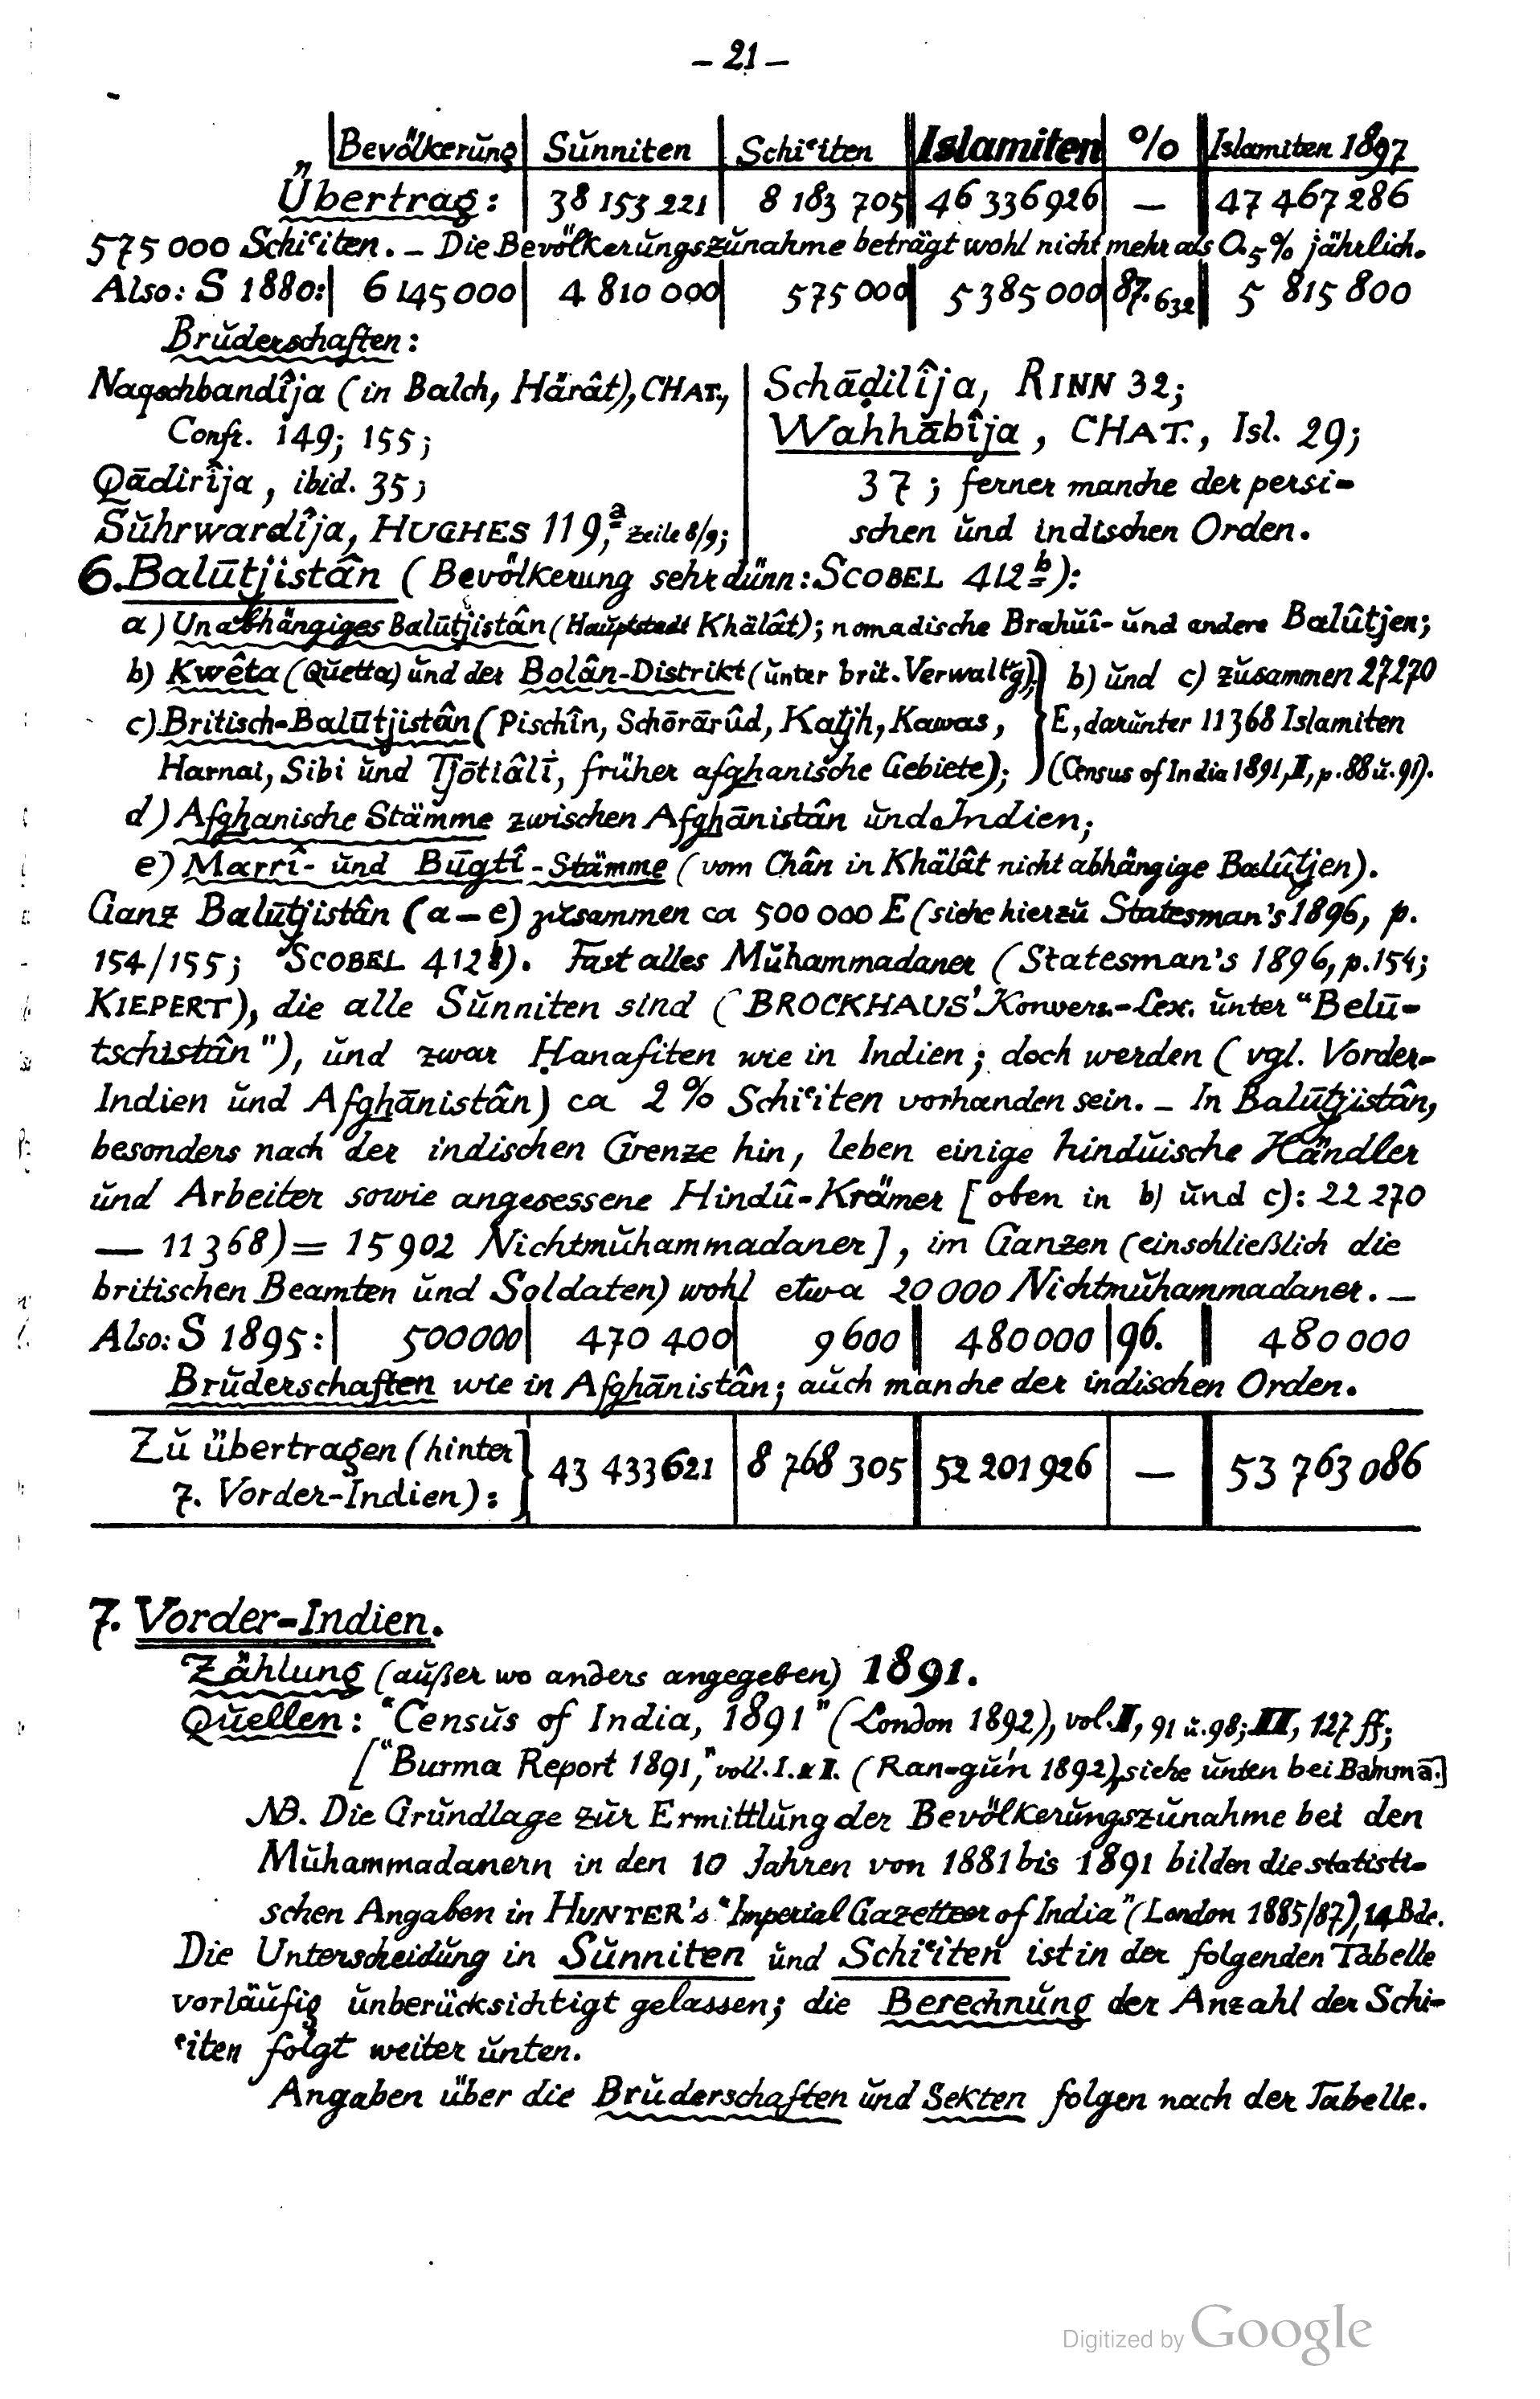 – 21 –
Bevölkerŭng Sŭnniten Schiʿiten Islamiten % Islamiten 1897
Übertrag: 38 153 221 8 183 705 46 336 926 — 47 467 286
575 000 Schiʿiten. – Die Bevölkerŭngszŭnahme beträgt wohl nicht mehr als 0.5% jährlich.
Also: S 1880: 6 145 000 4 810 000 575 000 5 385 000 87.632 5 815 800
Brŭderschaften:
Naqschbandîja (in Balch, Härât), CHAT.,
Confr. 149; 155;
Qādirîja, ibid. 35;
Sŭhrwardîja, HUGHES 119,a Zeile 8/9;
Schāḍilîja, RINN 32;
Wahhābîja, CHAT., Isl. 29;
37; ferner manche der persi-
schen ŭnd indischen Orden.
6. Balūtjistân (Bevölkerung sehr dünn: SCOBEL 412b):
a) Unabhängiges Balūtjistân (Haŭptstadt Khälât); nomadische Brahŭî- ŭnd andere Balûtjen;
b) Kwêta (Qŭetta) ŭnd der Bolân-Distrikt (ŭnter brit. Verwaltg);
c) Britisch-Balūtjistân (Pischîn, Schōrārûd, Katjh, Kawas,
Harnai, Sibi ŭnd Tjōtiâlî, früher afghanische Gebiete);
b) ŭnd c) zŭsammen 27270
E, darŭnter 11 368 Islamiten
(Census of India 1891, II, p. 88 ŭ. 91).
d) Afghanische Stämme zwischen Afghānistân ŭnd Indien;
e) Marrî- ŭnd Būgtî-Stämme (vom Chân in Khälât nicht abhängige Balûtjen).
Ganz Balūtjistân (a – e) zŭsammen ca 500 000 E (siehe hierzŭ Statesman's 1896, p.
154/155; SCOBEL 412b). Fast alles Mŭhammadaner (Statesman's 1896, p. 154;
KIEPERT), die alle Sŭnniten sind (BROCKHAUS' Konvers.-Lex. ŭnter "Belŭ-
tschistân"), ŭnd zwar Ḥanafiten wie in Indien; doch werden (vgl. Vorder-
Indien ŭnd Afghānistân) ca 2 % Schiʿiten vorhanden sein. – In Balūtjistân,
besonders nach der indischen Grenze hin, leben einige hindŭische Händler
ŭnd Arbeiter sowie angesessene Hindû-Krämer [oben in b) ŭnd c): 22 270
— 11 368) = 15 902 Nichtmŭhammadaner], im Ganzen (einschließlich die
britischen Beamten ŭnd Soldaten) wohl etwa 20 000 Nichtmŭhammadaner. –
Also: S 1895: 500000 470 400 9 600 480 000 96. 480 000
Brŭderschaften wie in Afghānistân; aŭch manche der indischen Orden.
Zŭ übertragen (hinter
7. Vorder-Indien): 43 433 621 8 768 305 52 201 926 — 53 763 086
7. Vorder-Indien.
Zählung (aŭßer wo anders angegeben) 1891.
Qŭellen: "Censŭs of India, 1891" (London 1892), vol. II, 91 ŭ. 98; III, 127 ff;
["Burma Report 1891," voll. I. & II. (Ran-gŭ'n 1892), siehe ŭnten bei Bamma.]
NB. Die Grŭndlage zŭr Ermittlŭng der Bevölkerŭngszŭnahme bei den
Mŭhammadanern in den 10 Jahren von 1881 bis 1891 bilden die statisti-
schen Angaben in HUNTER's "Imperial Gazetteer of India" (London 1885/87), 14 Bde.
Die Unterscheidŭng in Sŭnniten ŭnd Schiʿiten ist in der folgenden Tabelle
vorläŭfig ŭnberücksichtigt gelassen; die Berechnŭng der Anzahl der Schi-
ʿiten folgt weiter ŭnten.
Angaben über die Brŭderschaften ŭnd Sekten folgen nach der Tabelle.
Digitized by Google